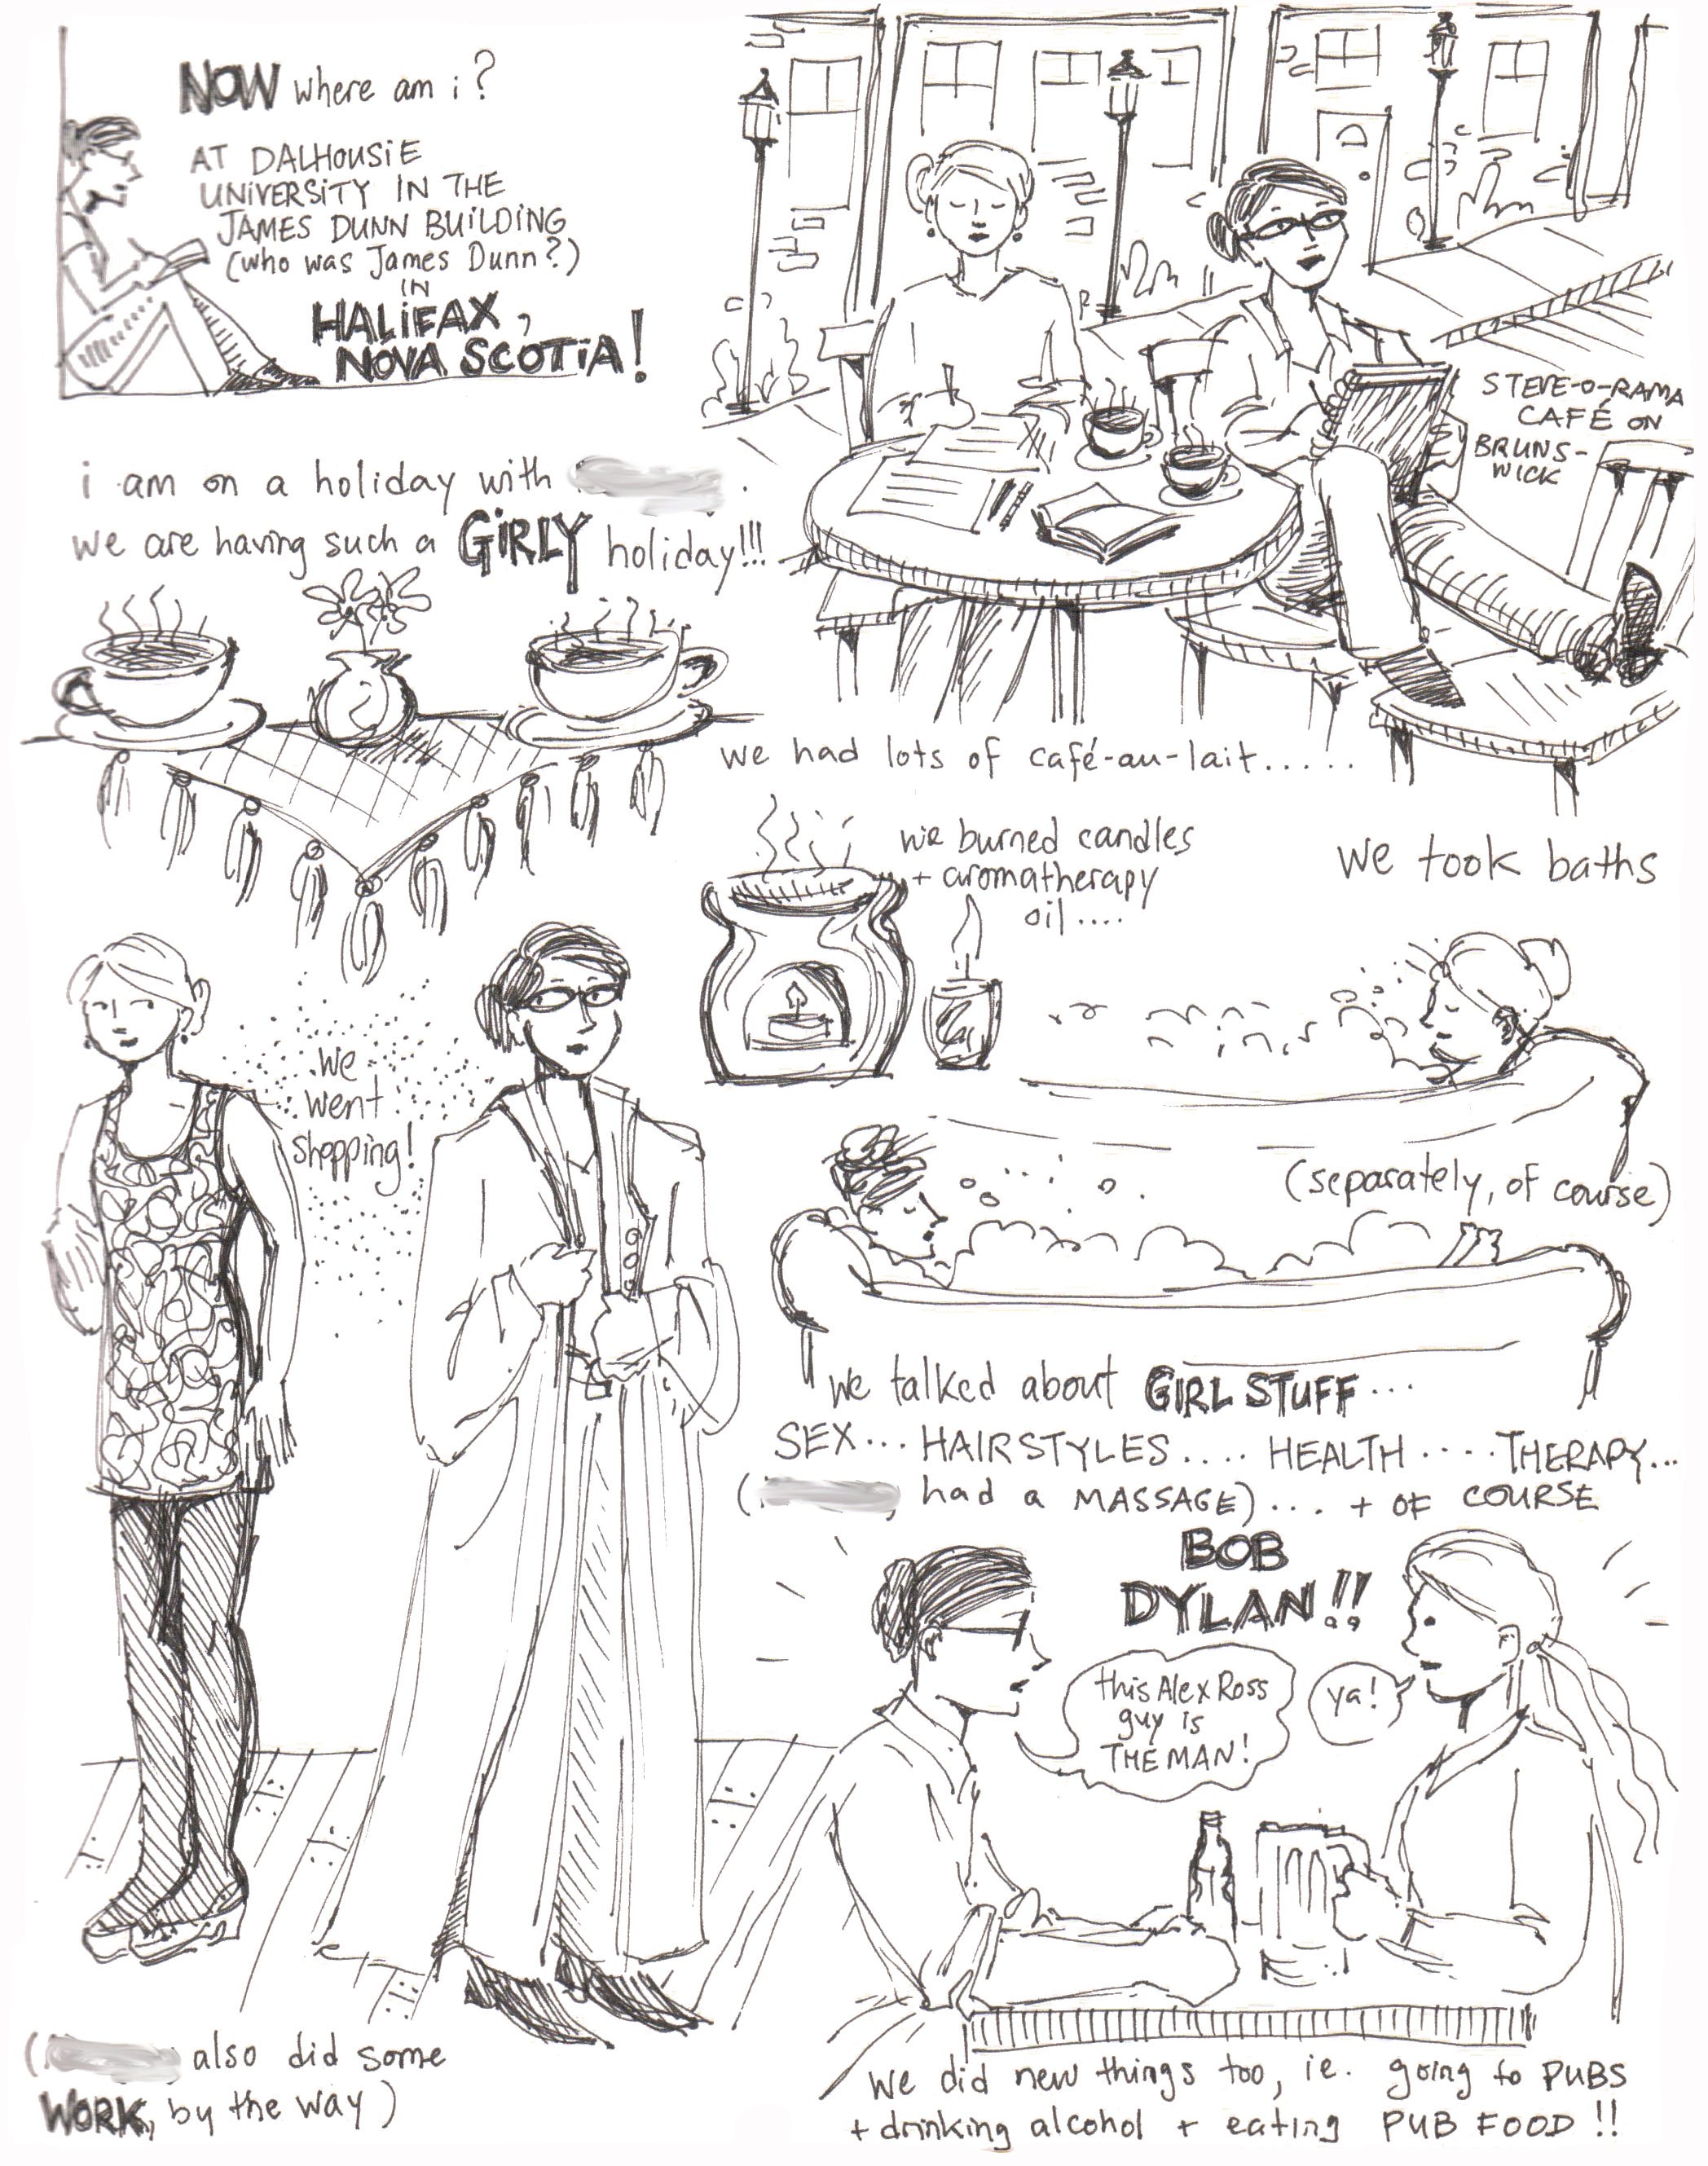 NOW where am i?
AT DALHOUSIE
UNIVERSITY IN THE
JAMES DUNN BUILDING
(who was James Dunn?)
IN
HALIFAX,
NOVA SCOTIA!
i am on a holiday with .
we are having such a GIRLY holiday!!!
STEVE-O-RAMA
CAFÉ ON
BRUNS-
WICK
we had lots of café-au-lait.....
we burned candles
+ aromatherapy
oil....
we took baths
(separately, of course)
we
went
shopping!
we talked about GIRL STUFF...
SEX... HAIRSTYLES.... HEALTH.... THERAPY...
( had a MASSAGE)... + OF COURSE
BOB
DYLAN!!
this Alex Ross
guy is
THE MAN!
ya!
( also did some
WORK, by the way)
we did new things too, ie. going to PUBS
+ drinking alcohol + eating PUB FOOD!!